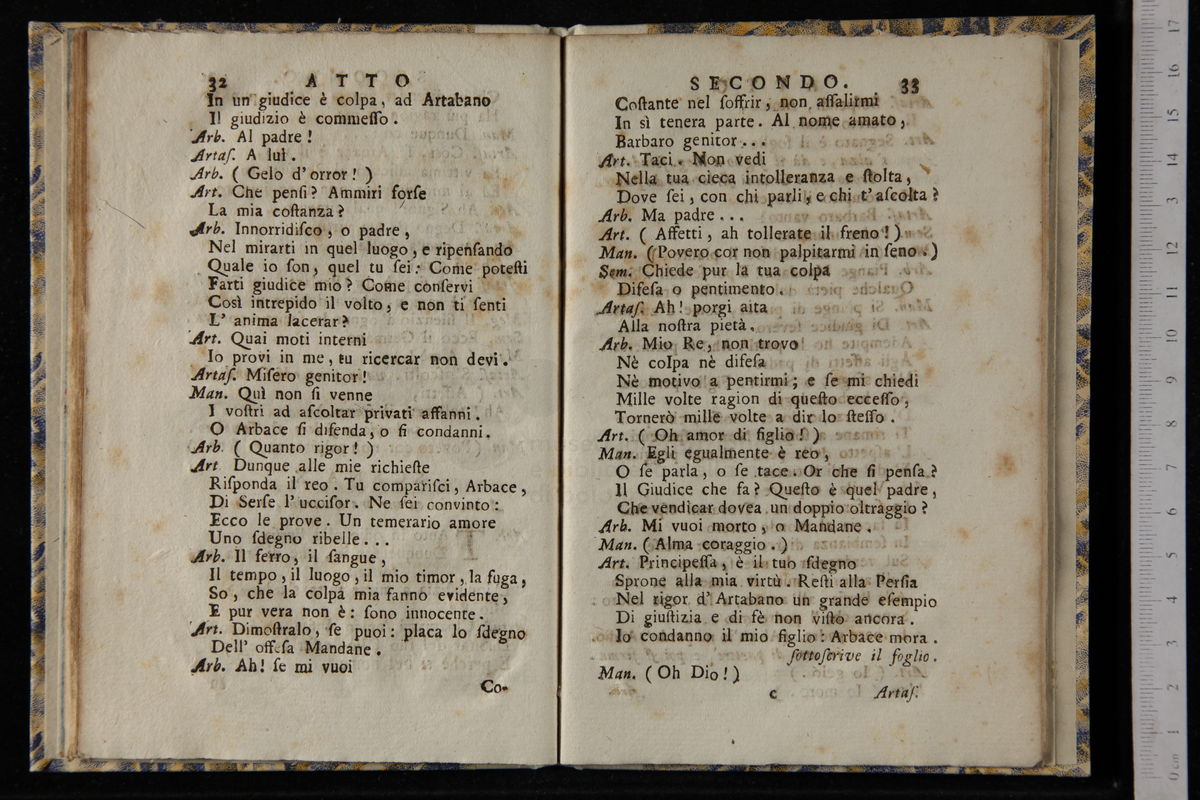 32 ATTO
In un giudice è colpa, ad Artabano
Il giudizio è commeſſo.
Arb. Al padre!
Artaſ. A lui.
Arb. ( Gelo d' orror! )
Art. Che penſi? Ammiri forſe
La mia coſtanza?
Arb. Innorridiſco, o padre,
Nel mirarti in quel luogo, e ripenſando
Quale io ſon, quel tu ſei: Come poteſti
Farti giudice mio? Come conſervi
Così intrepido il volto, e non ti ſenti
L' anima lacerar?
Art. Quai moti interni
Io provi in me, tu ricercar non devi.
Artaſ. Miſero genitor!
Man. Quì non ſi venne
I voſtri ad aſcoltar privati affanni.
O Arbace ſi difenda, o ſi condanni.
Arb. ( Quanto rigor! )
Art Dunque alle mie richieſte
Riſponda il reo. Tu compariſci, Arbace,
Di Serſe l' ucciſor. Ne ſei convinto:
Ecco le prove. Un temerario amore
Uno ſdegno ribelle...
Arb. Il ferro, il ſangue,
Il tempo, il luogo, il mio timor, la fuga,
So, che la colpa mia fanno evidente,
E pur vera non è: ſono innocente.
Art. Dimoſtralo, ſe puoi: placa lo ſdegno
Dell' offeſa Mandane.
Arb. Ah! ſe mi vuoi
Co-
SECONDO. 33
Coſtante nel ſoffrir, non aſſalirmi
In sì tenera parte. Al nome amato,
Barbaro genitor...
Art. Taci. Non vedi
Nella tua cieca intolleranza e ſtolta,
Dove ſei, con chi parli, e chi t' aſcolta?
Arb. Ma padre...
Art. ( Affetti, ah tollerate il freno! )
Man. (Povero cor non palpitarmi in ſeno.)
Sem. Chiede pur la tua colpa
Difeſa o pentimento.
Artaſ. Ah! porgi aita
Alla noſtra pietà.
Arb. Mio Re, non trovo
Nè colpa nè difeſa
Nè motivo a pentirmi; e ſe mi chiedi
Mille volte ragion di queſto ecceſſo,
Tornerò mille volte a dir lo ſteſſo.
Art. ( Oh amor di figlio! )
Man. Egli egualmente è reo,
O ſe parla, o ſe tace. Or che ſi penſa?
Il Giudice che fa? Queſto è quel padre,
Che vendicar dovea un doppio oltraggio?
Arb. Mi vuoi morto, o Mandane.
Man. ( Alma coraggio. )
Art. Principeſſa, è il tuo ſdegno
Sprone alla mia virtù. Reſti alla Perſia
Nel rigor d' Artabano un grande eſempio
Di giuſtizia e di fè non viſto ancora.
Io condanno il mio figlio: Arbace mora.
ſottoſcrive il foglio.
Man. ( Oh Dio! )
c Artaſ.